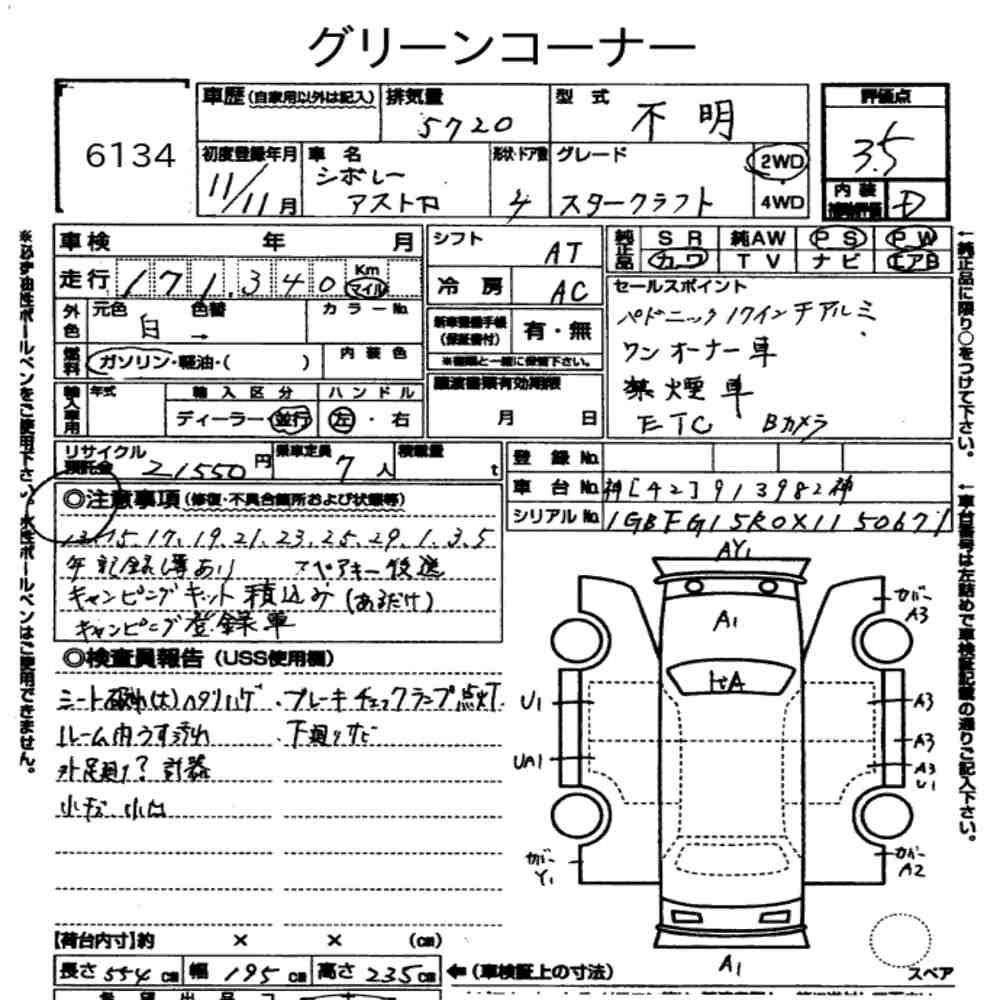 グリーンコーナー
6134
車歴(自家用以外は記入)
排気量 5720
型式 不明
評価点 3.5
初度登録年月 11/11月
車名 シボレー アストロ
形状・ドア数 4
グレード スタークラフト
2WD
4WD
内装 補助評価 D
※必ず油性ボールペンをご使用下さい。水性ボールペンはご使用できません。
車検 年 月
シフト AT
純正品 SR 純AW PS PW
カワ TV ナビ エアB
走行 171,340 Km マイル
冷房 AC
セールスポイント
パドニック17インチアルミ
ワンオーナー車
禁煙車
ETC Bカメラ
外色 元色 白 色替 → カラーNo.
新車整備手帳(保証書付) 有・無
※書類と一緒に保管下さい。
燃料 ガソリン・軽油・( ) 内装色
譲渡書類有効期限
月 日
輸入車用 年式 輸入区分 ハンドル
ディーラー・並行 左・右
←純正品に限り○をつけて下さい。
リサイクル預託金 21550円
乗車定員 7人
積載量 t
登録No.
車台No. 神[42]913982神
シリアルNo. 1GBFG15R0X1150671
←車台番号は左詰めで車検証記載の通りご記入下さい。
◎注意事項(修復・不具合箇所および状態等)
13.15.17.19.21.23.25.29.1.3.5
年記録簿あり スペアキー後送
キャンピングキット積込み(あるだけ)
キャンピング登録車
◎検査員報告(USS使用欄)
シート破れ(大)ヘタリハゲ
ブレーキチェックランプ点灯
ルーム内うす汚れ
下廻りサビ
外足廻り?計器
小キズ、小凹
AY1
A1
カバー A3
U1
A3
UA1
A3
A3
U1
カバー Y1
カバー A2
A1
スペア
【荷台内寸】約 × × (cm)
長さ 554cm 幅 195cm 高さ 235cm ←(車検証上の寸法)